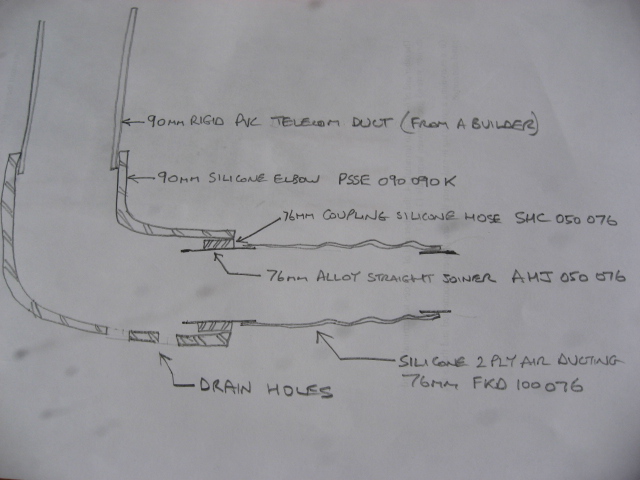 90mm RIGID PVC TELECOM DUCT (FROM A BUILDER)
90mm SILICONE ELBOW PSSE 090 090K
76mm COUPLING SILICONE HOSE SHC 050 076
76mm ALLOY STRAIGHT JOINER AHJ 050 076
SILICONE 2 PLY AIR DUCTING
76mm FKD 100076
DRAIN HOLES